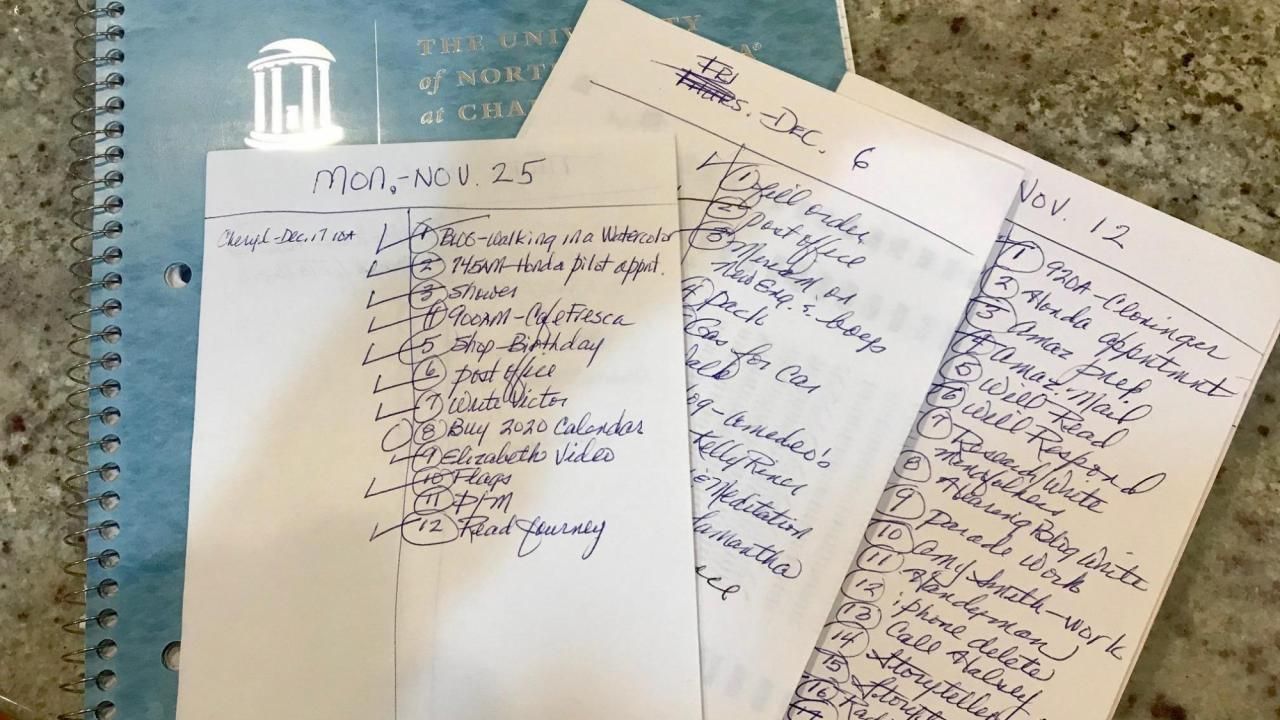 THE UNIVERSITY
of NORTH
at CHA
MON.-NOV. 25
Cheryl-Dec. 17 10A
1 BLOG-Walking in a Watercolor
2 745AM-Honda pilot appnt.
3 Shower
4 900AM-Cafe Fresca
5 Shop-Birthday
6 post office
7 Write Victor
8 Buy 2020 Calendar
9 Elizabeth Video
10 Flags
11 P/M
12 Read Journey
FRI
THURS.-DEC. 6
1 fill order
2 Post office
3 on
New Eng. &
4 pack
Gas for Car
og-Comedeo's
Kelly
Meditation
amantha
NOV. 12
1 920A-Cloninger
2 Honda appntmnt
3 Amaz prep
4 Amaz. Mail
5 Will Read
6 Will Respond
7 Research/Write
8 Mindfulness
9 Blog Write
10 Parade work
11 Amy Smith-work
12 Handyman
13 iphone delete
14 Call Halsey
15 Storyteller
16
17